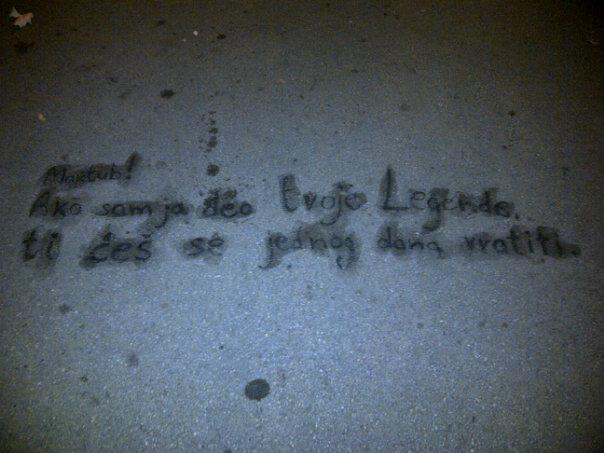 Maktub!
Ako sam ja deo tvoje Legende,
ti ćeš se jednog dana vratiti.